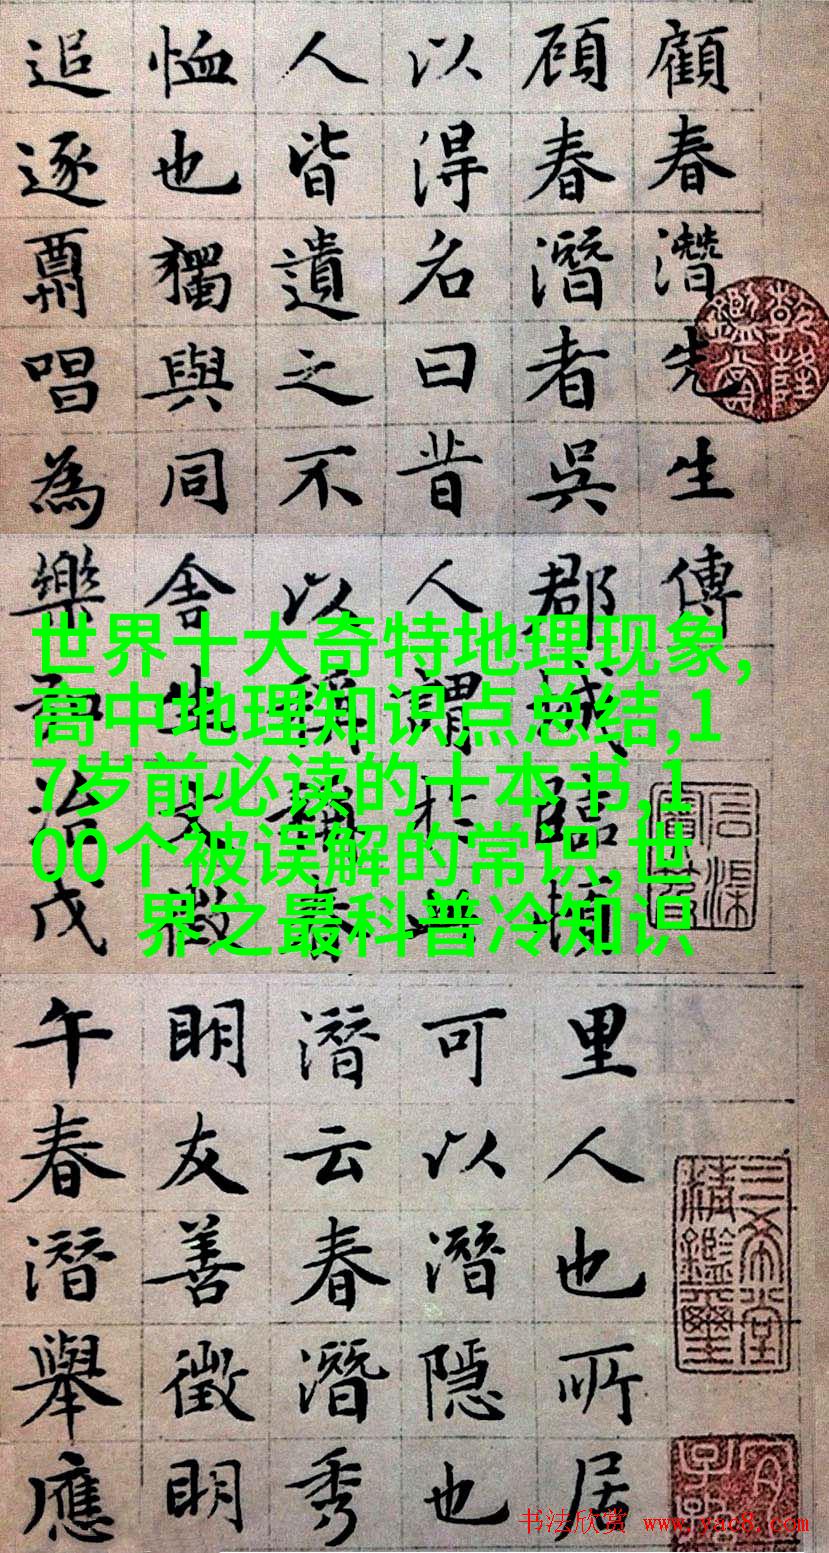 顧春潛先生傳
顧春潛者吳郡城臨頓里人也所居
以得名曰昔人謂於此可以潛隱也
人皆遺之不以稱潛云春潛秀
恤也獨與同舍生文徵明友善徵明
追逐唱為樂弘治戊午春潛舉應
乾隆鑑賞
三希堂精鑑璽
世界十大奇特地理现象,
高中地理知识点总结,1
7岁前必读的十本书,1
00个被误解的常识,世
界之最科普冷知识
书法欣赏 www.yac8.com